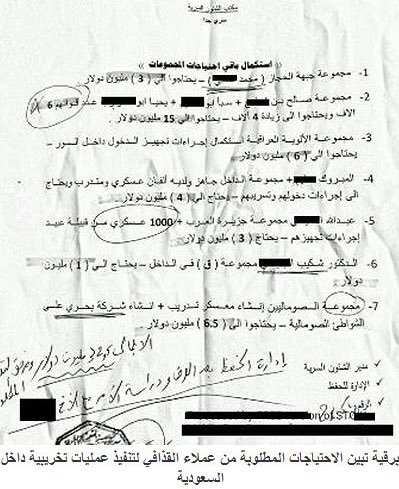 مكتب الشئون السرية
سري جدا
« استكمال باقي احتياجات المجموعات »
1- مجموعة جبهة الحجاز ( محمد ) – يحتاجوا الي ( 3 ) مليون دولار .
2- مجموعة صالح بن + سبأ ابو + يحيا ابو عدد قواتهم 6
الاف ويحتاجوا الى زيادة 4 ألاف – ويحتاجوا الى 15 مليون دولار .
3- مجموعة الألوية العراقية استكمال إجراءات تجهيز الدخول داخل
يحتاجوا الى ( 6 ) مليون دولار .
4- المبروك مجموعة الداخل جاهز ولديه ألفان عسكري ومتدرب ويحتاج
الى إجراءات دخولهم وتسريبهم – يحتاج الى ( 4 ) مليون دولار .
5- عبدالله مجموعة جزيرة العرب + 1000 عسكري من قبيلة
إجراءات تجهيزهم – يحتاج ( 3 ) مليون دولار .
6- الدكتور شكيب مجموعة ( ق ) في الداخل – يحتاج الى ( 1 ) مليون
دولار .
7- مجموعة الصوماليين إنشاء معسكر تدريب + انشاء شركة بحري على
الشواطئ الصومالية – يحتاجوا الى ( 6.5 ) مليون دولار .
مدير الشئون السرية
الإدارة للحفظ
إدارة الحفظ بعد
برقية تبين الاحتياجات المطلوبة من عملاء القذافي لتنفيذ عمليات تخريبية داخل
السعودية